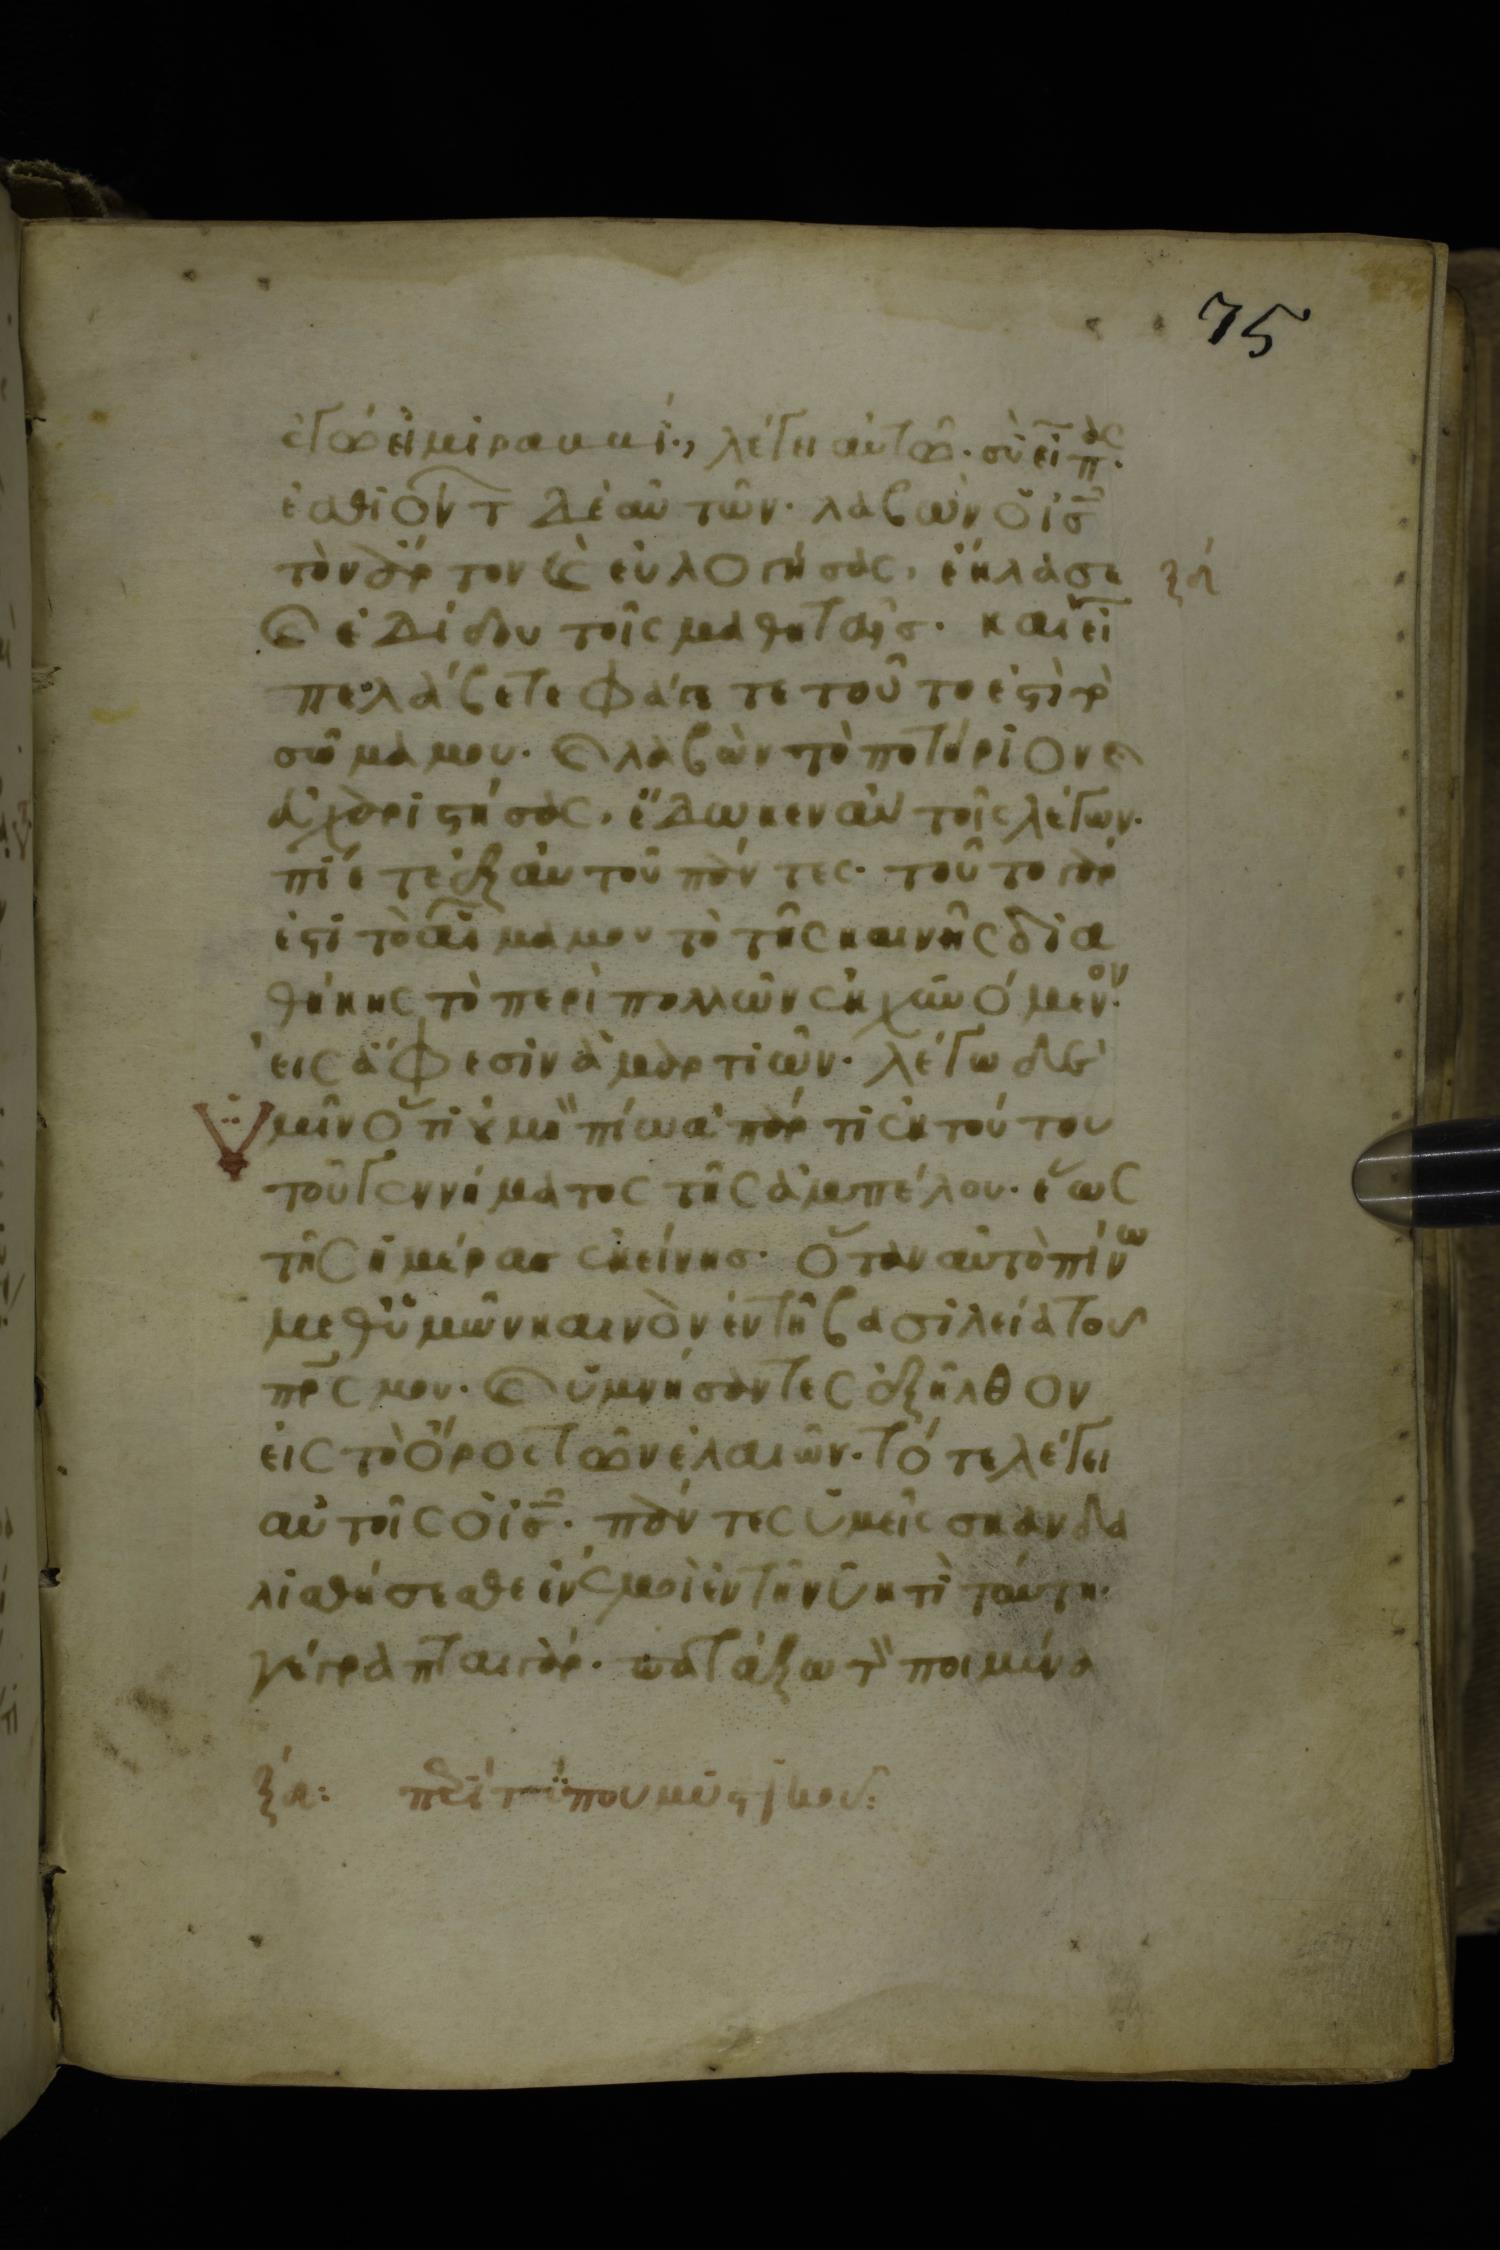 75
ἐγώ εἰμι ῥαββί· λέγει αὐτῶ· σὺ εἶπας·
ἐσθιόντ δὲ αὐτῶν· λαβὼν ὁ ις
τὸν ἄρτον καὶ εὐλογήσας, ἔκλασε ξα
καὶ ἐδίδου τοῖς μαθηταῖς· καὶ εἶ
πε λάβετε φάγετε τοῦτο ἐστὶ τὸ
σῶμά μου· καὶ λαβὼν τὸ ποτήριον καὶ
εὐχαριστήσας, ἔδωκεν αὐτοῖς λέγων·
πίετε ἐξ αὐτοῦ πάντες· τοῦτο γάρ
ἐστι τὸ αἷμα μου τὸ τῆς καινῆς δια
θήκης τὸ περὶ πολλῶν ἐκχυνόμενον·
εἰς ἄφεσιν ἁμαρτιῶν· λέγω δὲ ὑ
μῖν ὅτι οὐ μὴ πίω ἀπάρτι ἐκ τούτου
τοῦ γεννήματος τῆς ἀμπέλου· ἕως
τῆς ἡμέρας ἐκείνης· ὅταν αὐτὸ πίνω
μεθ ὑμῶν καινὸν ἐν τῆ βασιλεία του
πρς μου· καὶ ὑμνήσαντες ἐξῆλθον
εἰς τὸ ὄρος τῶν ἐλαιῶν· τότε λέγει
αὐτοῖς ὁ ις· πάντες ὑμεῖς σκανδα
λισθήσεσθε ἐν ἐμοὶ ἐν τῆ νυκτὶ ταύτη·
γέγραπται γάρ· πατάξω τὸν ποιμένα
ξα: περὶ τύπου μυστικοῦ: